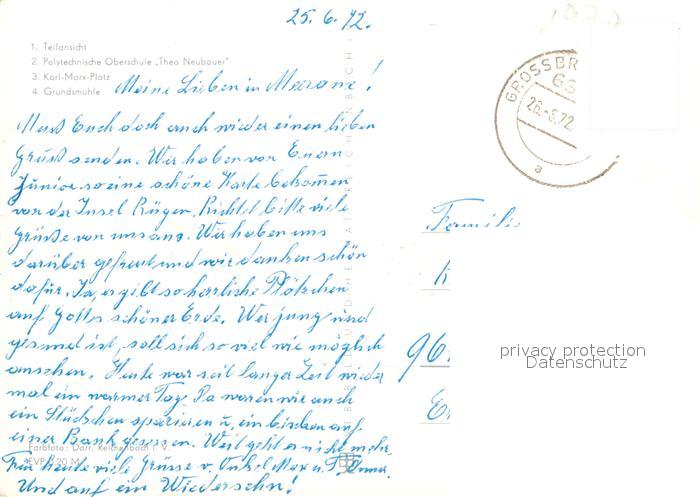 25.6.72.
1. Teilansicht
2. Polytechnische Oberschule „Theo Neubauer"
3. Karl-Marx-Platz
4. Grundsmühle
Meine Lieben in Meerane!
Muß Euch doch auch wieder einen lieben
Gruß senden. Wir haben von Euern
Junior so eine schöne Karte bekommen
von der Insel Rügen. Richtet bitte viele
Grüße von uns aus. Wir haben uns
darüber gefreut und wir danken schön
dafür. Ja, es gibt so herrliche Plätzchen
auf Gottes schöner Erde. Wer jung und
gesund ist, soll sich so viel wie möglich
ansehen. Heute war seit langer Zeit wieder
mal ein warmer Tag. Da waren wir auch
ein Stückchen spazieren u. ein bischen auf
einer Bank gesessen. Weit geht es nicht mehr.
Farbfoto: Darr, Reichenbach i. V.
EVP 0,20 M
Für heute viele Grüsse v. Onkel Max u. T.
Und auf ein Wiedersehn!
GROSSBR
GS
26.-6.72.
a
Familie
K
96
privacy protection
Datenschutz